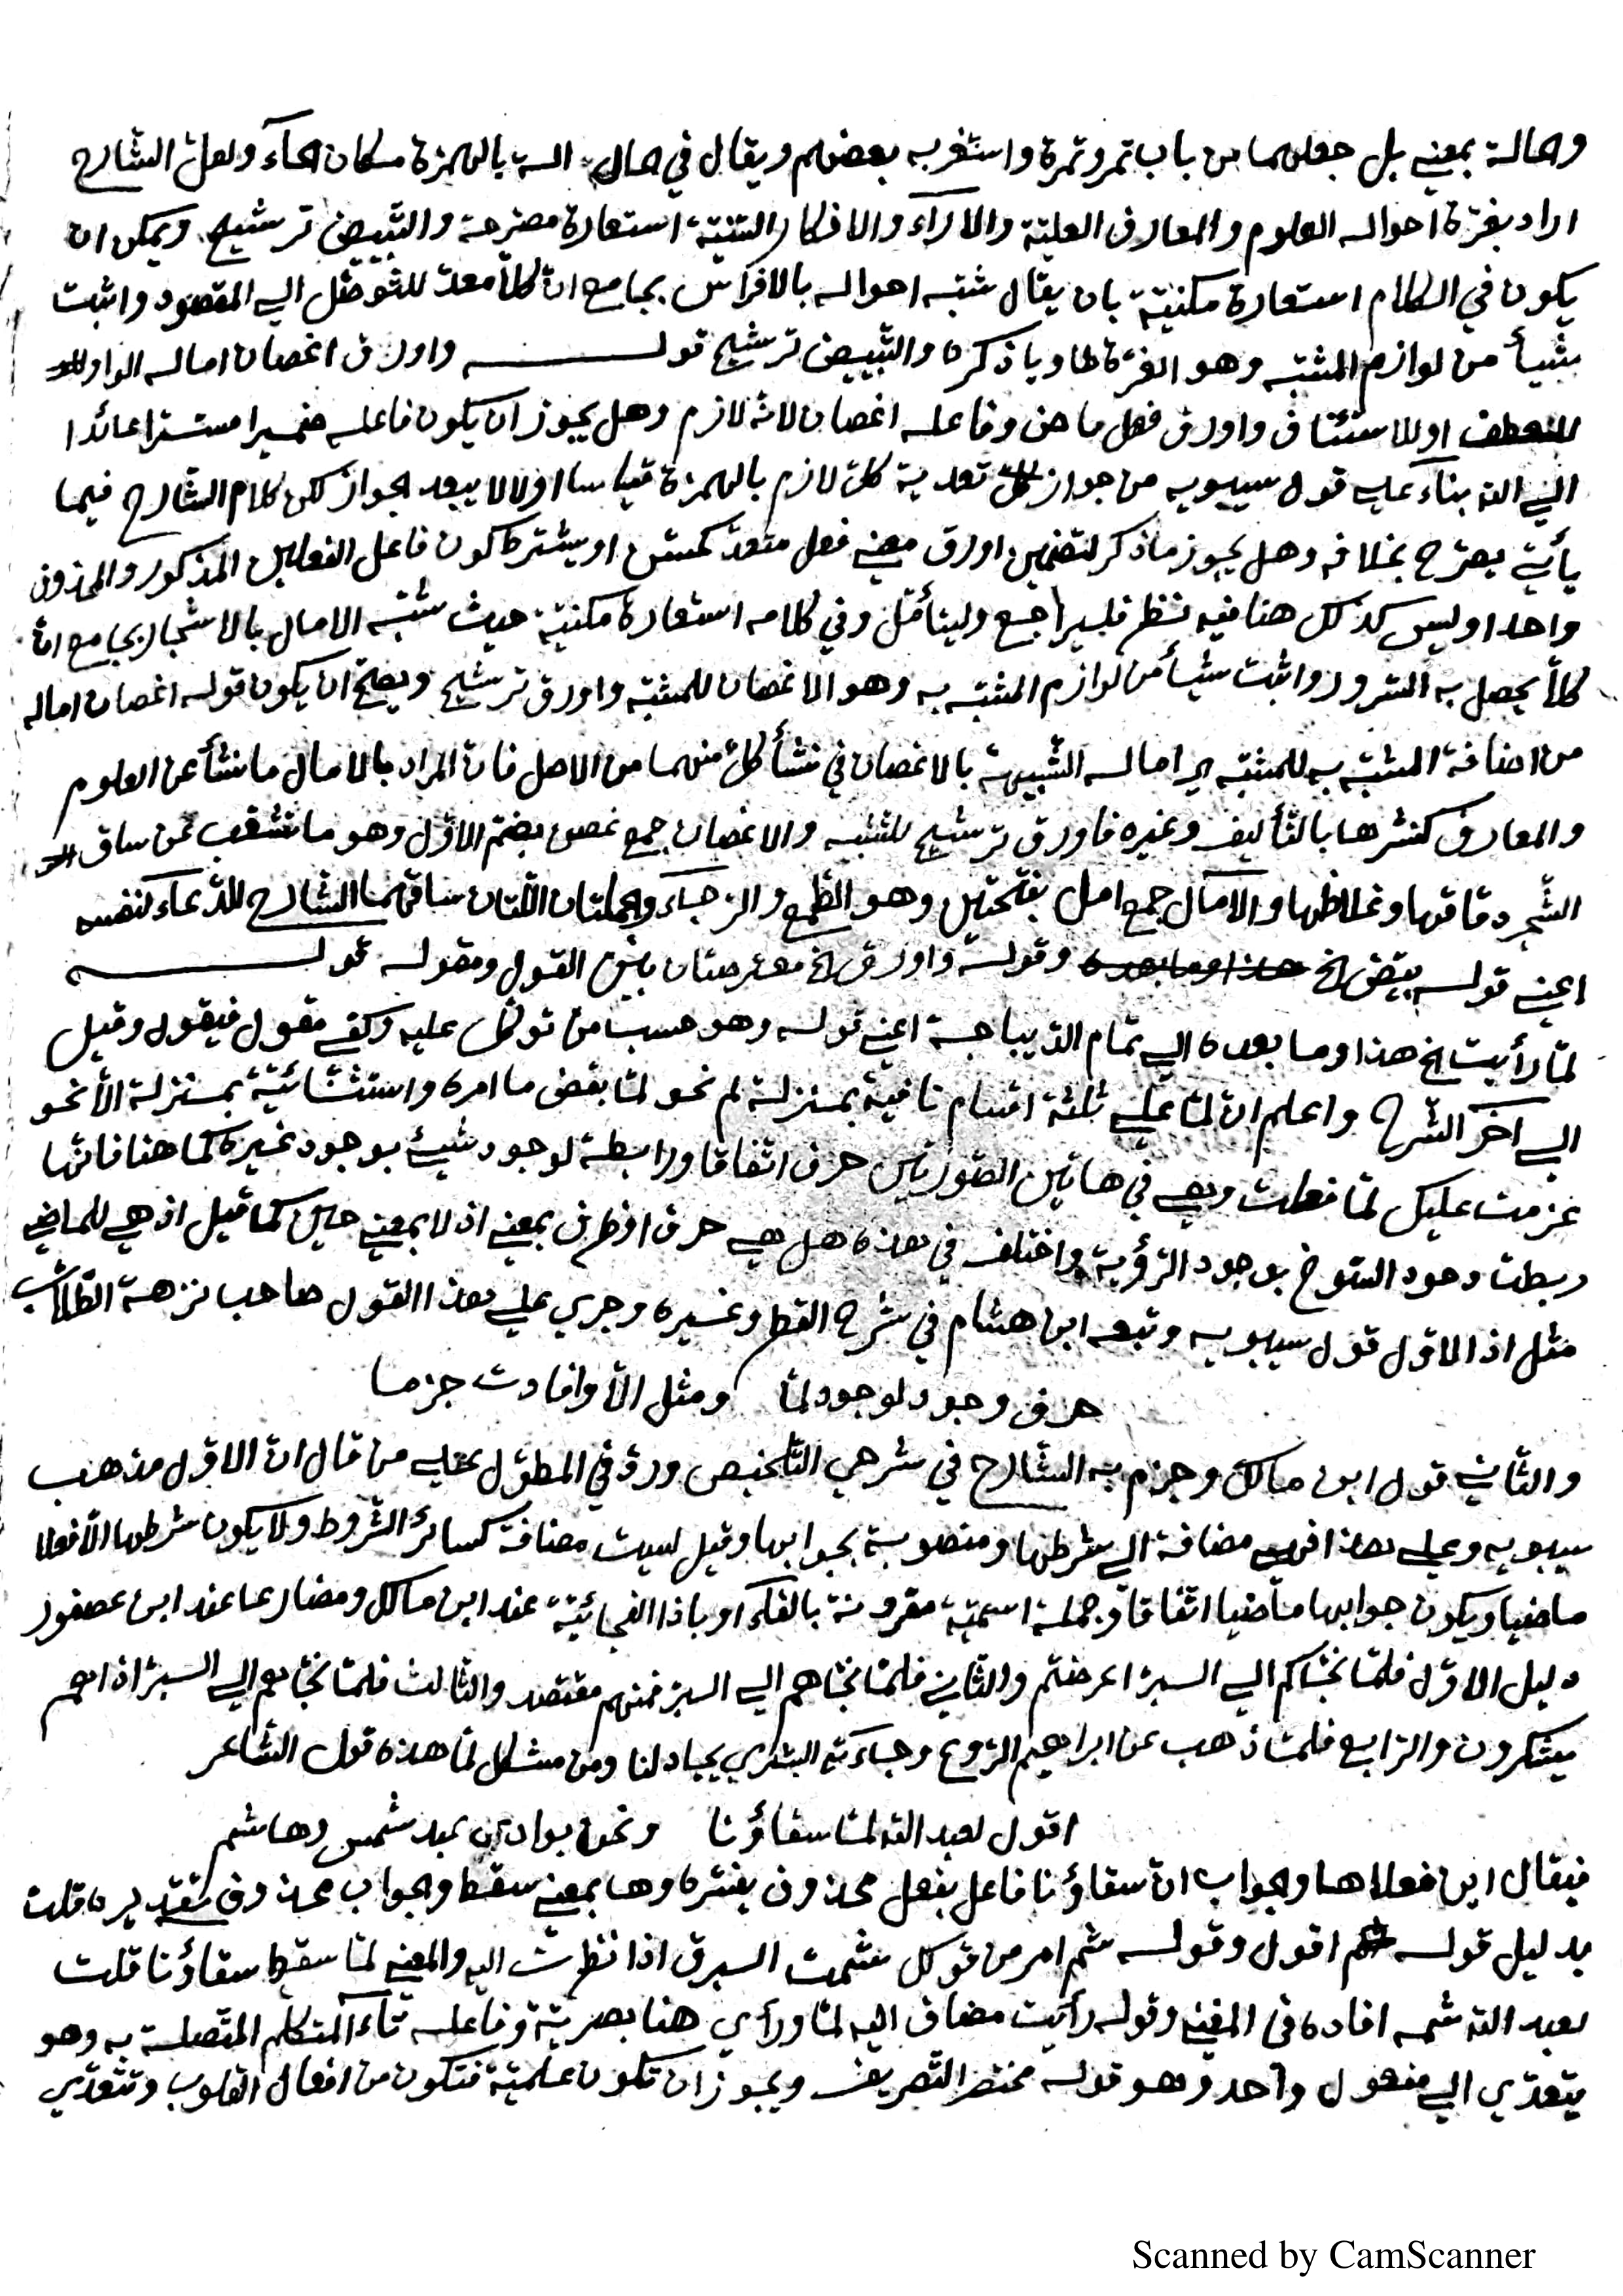 وحالة بمعني بل جعلهما من باب تمر وتمرة واستغربه بعضهم ويقال في حال آلة بالهمزة مكان الحآء ولعل الشارح
اراد بغرة احواله العلوم والمعارف العليّة والاراء والافكار السّنيّة استعارة مصرّحة والتّبييض ترشيح ويمكن ان
يكون في الكلام استعارة مكنيّة بان يقال شبّه احواله بالافراس بجامع انّ كلّاً معدّ للتّوصّل الي المقصود واثبت
شيأ من لوازم المشبّه وهو الغرّة لها ويا ذكره والتّبييض ترشيح قولـه واورق اغصان اماله الواو
للعطف او للاستئناف واورق فعل ماض وفاعله اغصان لانّه لازم وهل يجوز ان يكون فاعله ضميرا مستترا عائدا
الي الله بناء علي قول سيبويه من جواز تعدية كلّ لازم بالهمزة قياسا اولا لا يبعد الجواز لكن كلام الشارح فيما
يأتي يصرّح بخلافه وهل يجوز ماذكر لتضمين اورق معني فعل متعدّ كحسّن او يشترط كون فاعل الفعلين المذكور والمحذوف
واحدا وليس كذلك هنا فيه نظر فليراجع وليتأمّل وفي كلامه استعارة مكنيّة حيث شبّه الامال بالاشجار بجامع انّ
كلّاً يحصل به السّرور واثبت شيأ من لوازم المشبّه به وهو الاغصان للمشبّه واورق ترشيح ويصحّ ان يكون قوله اغصان اماله
من اضافة المشبّه به للمشبّه اي اماله الشّبيهة بالاغصان في نشأ كلّ منهما من الاصل فانّ المراد بالامال مانشأ عن العلوم
والمعارف كنشرها بالتّأليف وغيره فاورق ترشيح للتّشبيه والاغصان جمع غصن بضمّ الاوّل وهو ما تشعّب عن ساق
الشّجر دقاقها وغلاظها والآمال جمع امل بفتحتين وهو الطّمع والرّجآء والجملتان اللّتان ساقهما الشّارح للدّعآء لنفسه
اعني قوله بيّض الخ وقوله واورق الخ معترضتان بين القول ومقوله قولـه
لمّا رأيت الخ هذا وما بعده الي تمام الدّيباجة اعني قوله وهو حسب من توكّل عليه وكفي مقول فيقول وقيل
الي اخر الشّرح واعلم انّ لمّا علي ثلثة اقسام نافية بمنزلة لم نحو لمّا يقض ما امره واستثنائيّة بمنزلة الّا نحو
عزمت عليك لمّا فعلت وهي في هاتين الصّورتين حرف اتّفاقا ورابطة لوجود شيئ بوجود غيره كما هنا فانّها
ربطت وجود السّنوح بوجود الرّؤية واختلف في هذه هل هي حرف او ظرف بمعني اذ لا بمعني حين كما قيل اذ هي للماضي
مثل اذ الاوّل قول سيبويه وتبعه ابن هشام في شرح القطر وغيره وجري علي هذا القول صاحب نزهة الطّلاب
حرف وجود لوجود لمّا ومثل الّا وافادت جزما
والثّاني قول ابن مالك وجزم به الشّارح في شرحي التّلخيص وردّ في المطوّل علي من قال انّ الاوّل مذهب
سيبويه وعلي هذا فهي مضافة الي شرطها ومنصوبة بجوابها وقيل ليست مضافة كسائر الشّروط ولا يكون شرطها الّا فعلا
ماضيا ويكون جوابها ماضيا اتّفاقا وجملة اسميّة مقرونة بالفآء او باذا الفجائيّة عند ابن مالك ومضارعا عند ابن عصفور
دليل الاوّل فلمّا نجّاكم الي البرّ اعرضتم والثّاني فلمّا نجّاهم الي البرّ فمنهم مقتصد والثّالث فلمّا نجّاهم الي البرّ اذا هم
يشركون والرّابع فلمّا ذهب عن ابراهيم الرّوع وجآءته البشري يجادلنا ومن مشكل لمّا هذه قول الشّاعر
اقول لعبد الله لمّا سقاؤنا ونحن بوادي عبد شمس وهاشم
فيقال اين فعلاها والجواب انّ سقاؤنا فاعل بفعل محذوف يفسّره وها بمعني سقط والجواب محذوف تقديره قلت
بدليل قوله اقول وقوله شم امر من قولك شمت البرق اذا نظرت اليه والمعني لمّا سقط سقاؤنا قلت
لعبد الله شمه افاده في المغني وقوله رأيت مضاف اليه لمّا ورأي هنا بصريّة وفاعله تآء المتكلّم المتّصلة به وهو
يتعدّي الي مفعول واحد وهو قوله مختصر التّصريف ويجوز ان تكون علميّة فتكون من افعال القلوب وتتعدّي
Scanned by CamScanner